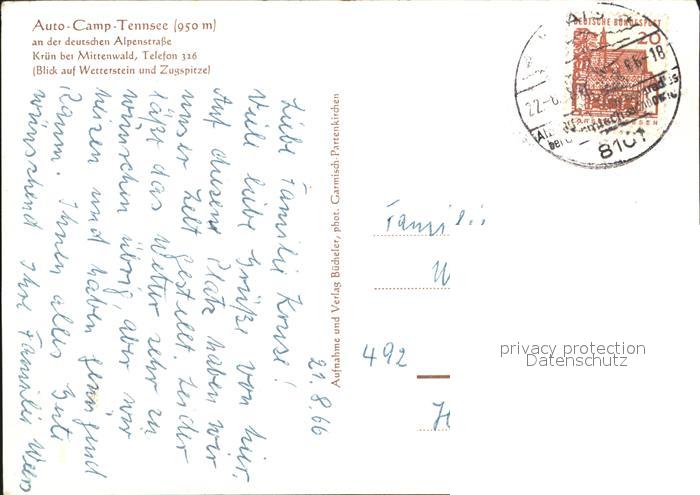 Auto-Camp-Tennsee (950 m)
an der deutschen Alpenstraße
Krün bei Mittenwald, Telefon 326
(Blick auf Wetterstein und Zugspitze)
21.8.66
Liebe Familie Kruse!
Viele liebe Grüße von hier.
Auf diesem Platz haben wir
unser Zelt gestellt. Leider
läßt das Wetter sehr zu
wünschen übrig, aber wir
heizen und haben genügend
Raum. Ihnen alles Gute
wünschend Ihre Familie
Aufnahme und Verlag Bücheler, phot. Garmisch-Partenkirchen
DEUTSCHE BUNDESPOST
20
22.-8.66-18
8101
Familie
W
492
H
privacy protection
Datenschutz